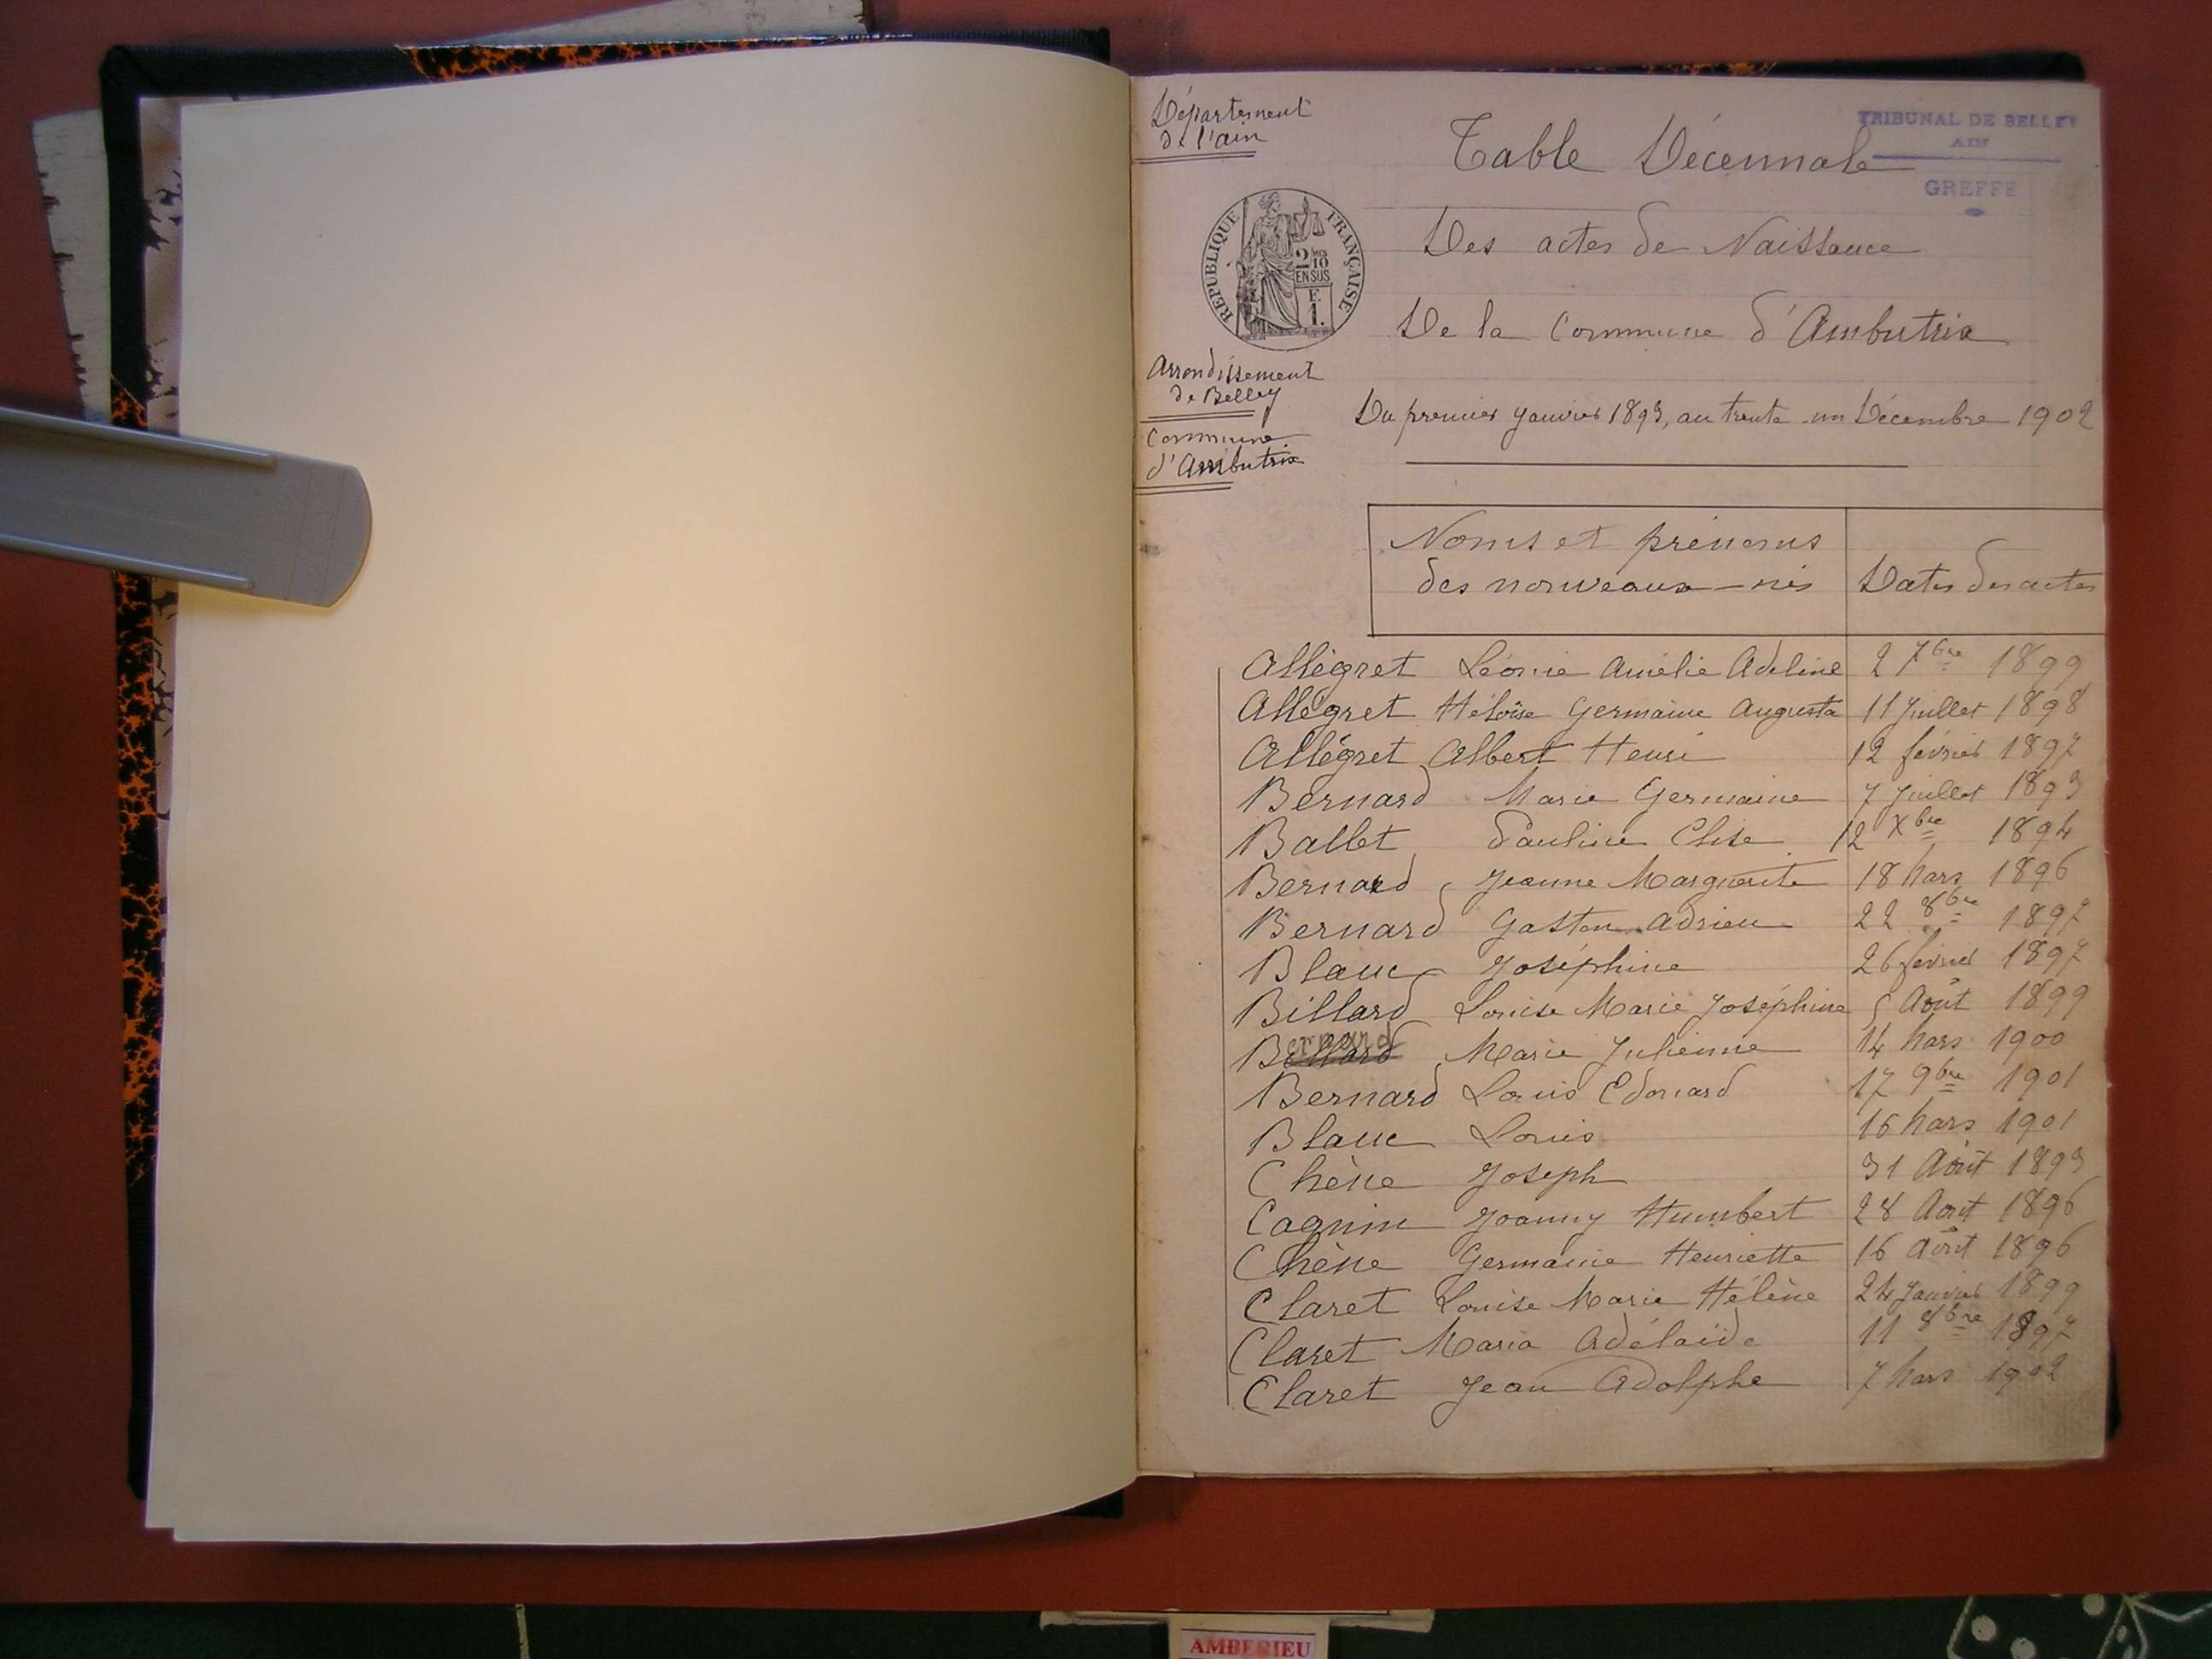 Département
de l'ain
TRIBUNAL DE BELLEY
AIN
GREFFE
Table Décennale
REPUBLIQUE FRANÇAISE
2/10
EN SUS
F.
1.
Des actes de Naissance
De la Commune d'Ambutrix
Arrondissement
de Belley
Commune
d'Ambutrix
Du premier Janvier 1893, au trente-un Décembre 1902
Noms et prénoms
des nouveaux-nés
Dates des actes
Allégret Léonie Amélie Adeline 2 7bre 1899
Allégret Héloïse Germaine Augusta 11 Juillet 1898
Allégret Albert Henri 12 février 1897
Bernard Marie Germaine 7 Juillet 1893
Ballet Pauline Elise 12 Xbre 1894
Bernard Jeanne Marguerite 18 Mars 1896
Bernard Gaston Adrien 22 8bre 1897
Blanc Joséphine 26 février 1897
Billard Louise Marie Joséphine 5 Août 1899
Bernard Marie Julienne 14 Mars 1900
Bernard Louis Edouard 17 9bre 1901
Blanc Louis 16 Mars 1901
Chêne Joseph 31 Août 1893
Cagnin Joanny Humbert 28 Août 1896
Chêne Germaine Henriette 16 Août 1896
Claret Louise Marie Hélène 24 Janvier 1899
Claret Maria Adélaïde 11 8bre 1897
Claret Jean Adolphe 7 Mars 1902
AMBERIEU